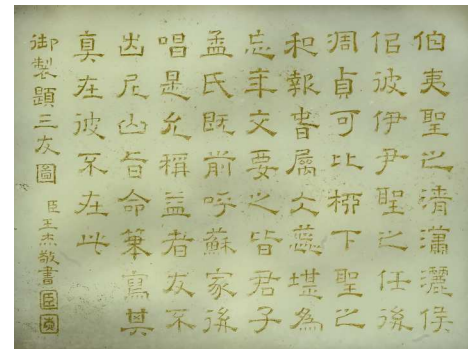 伯夷聖之清瀟灑侯
侶彼伊尹聖之任後
凋貞可比柳下聖之
和報春屬大蕊堪為
忘年交要之皆君子
孟氏既前呼蘇家後
唱是允稱益者友不
出尼山旨命筆寫其
真在彼不在此
御製題三友圖 臣王杰敬書
臣
杰